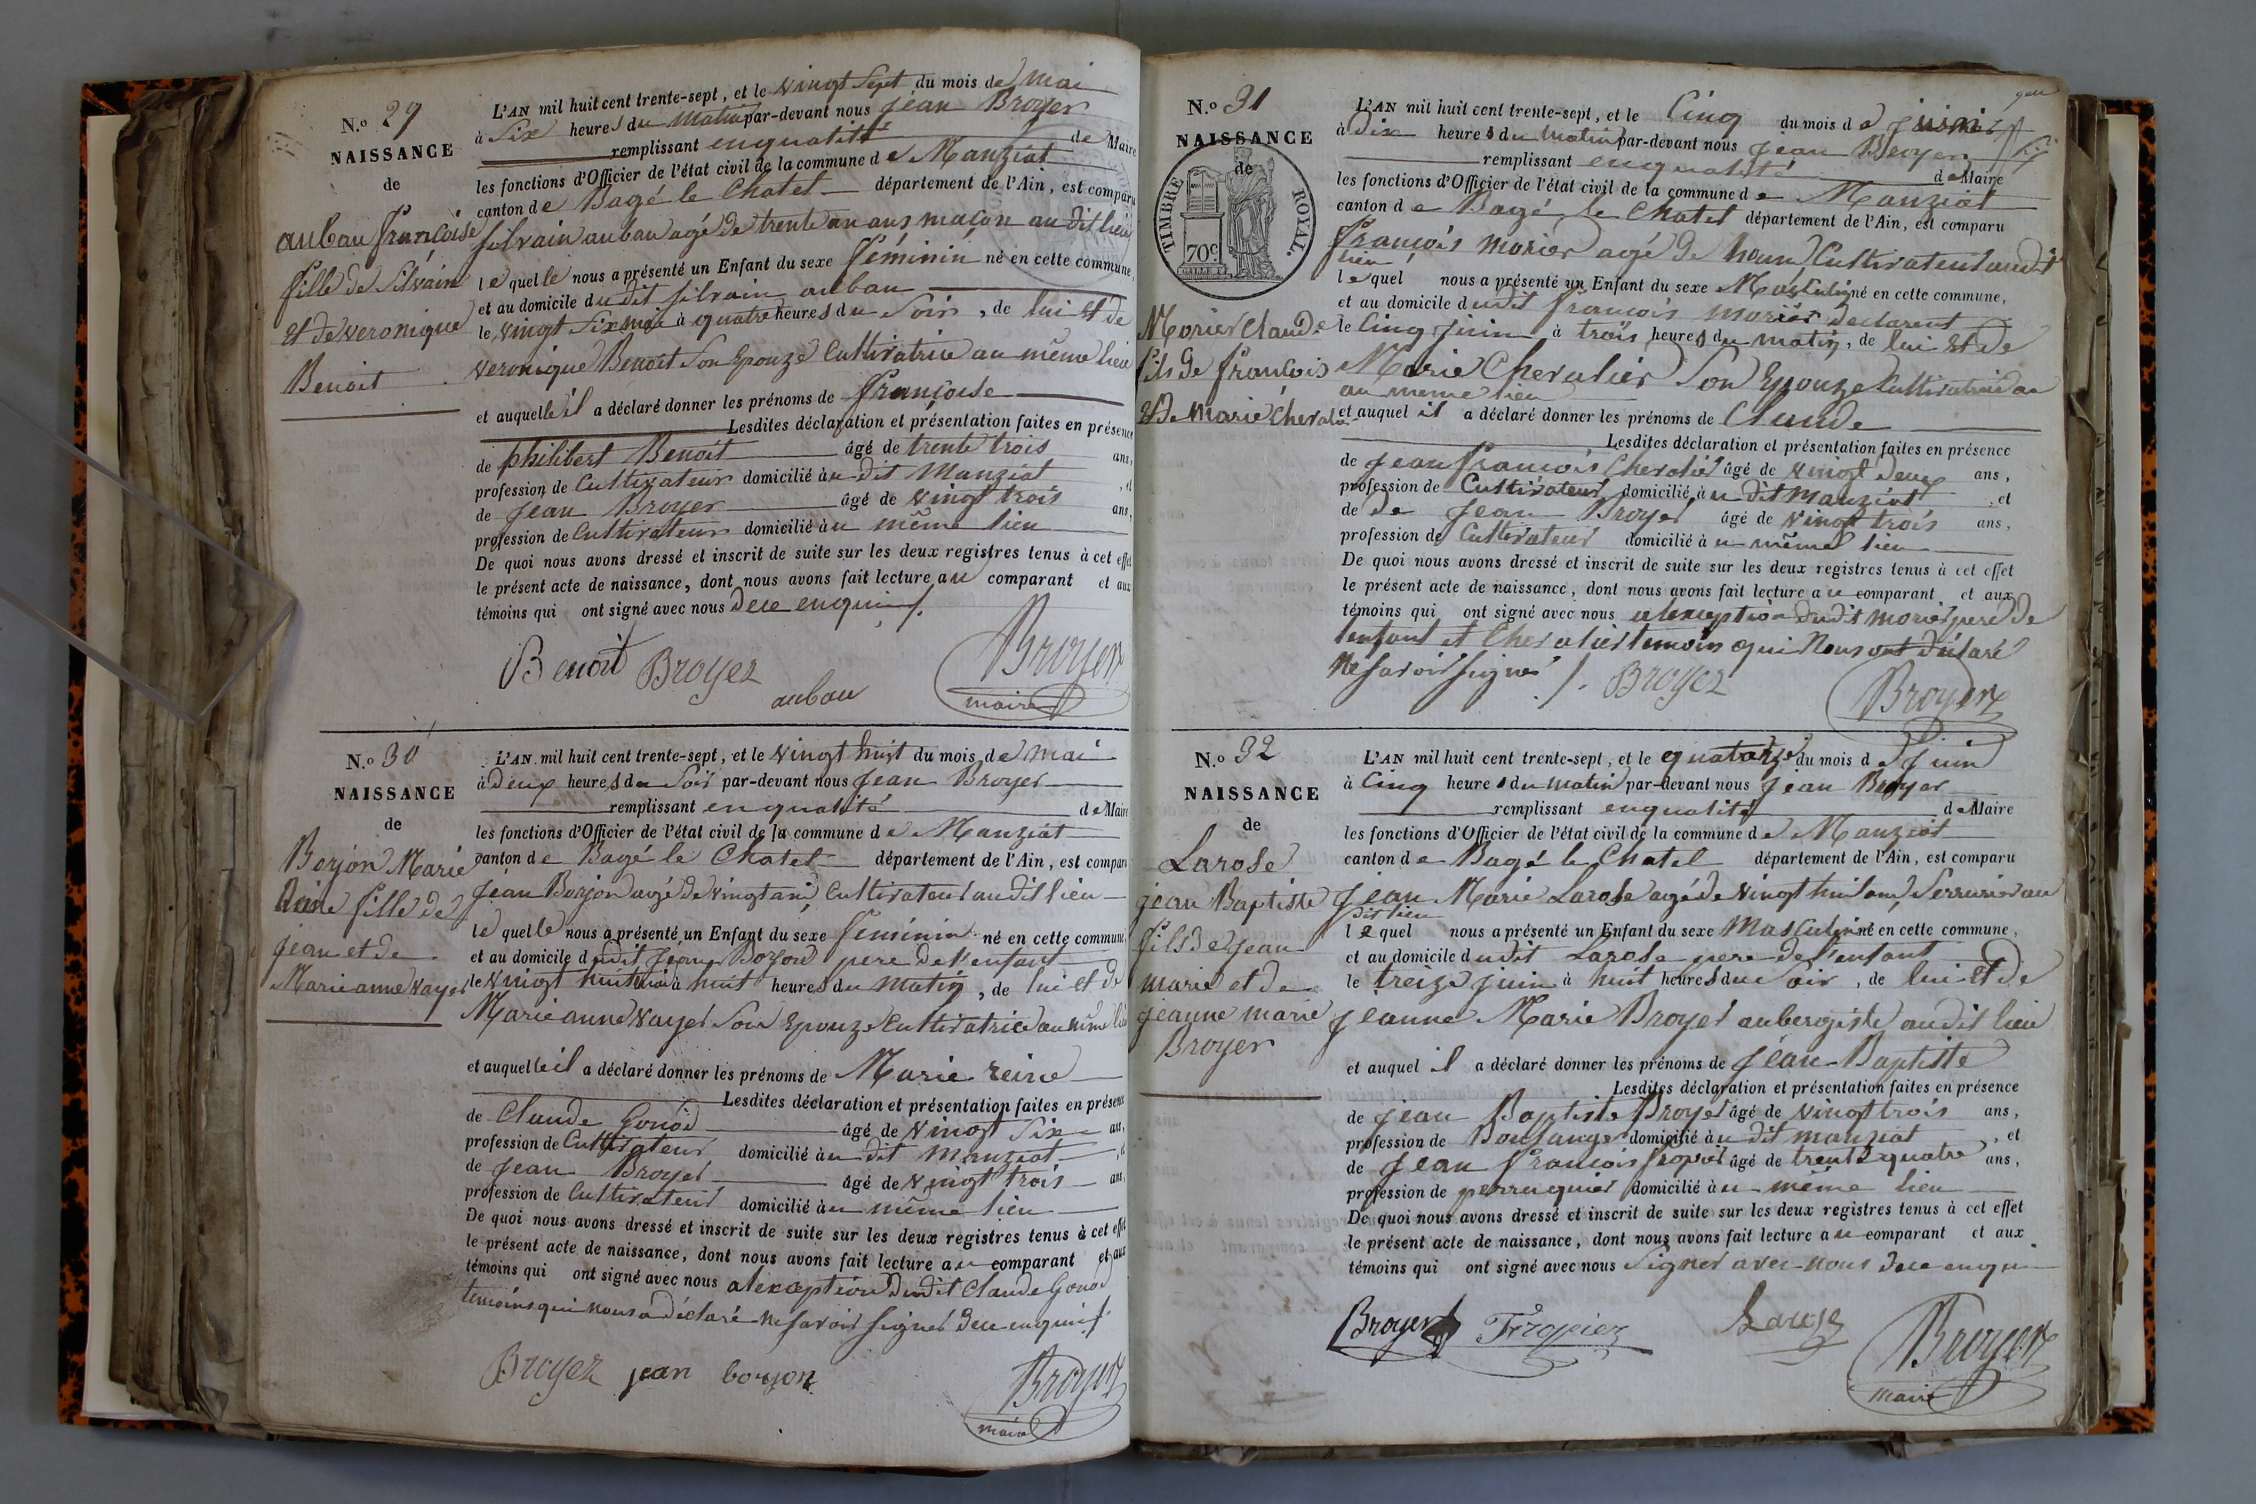 N.o 29
NAISSANCE
de
aubau françoise
fille de Silvain
et de veronique
Benoit
L'AN mil huit cent trente-sept, et le vingt sept du mois de mai
à Six heures du matin par-devant nous jean Broyer
remplissant enqualité de Maire
les fonctions d'Officier de l'état civil de la commune de Manziat
canton de Bagé le Chatel département de l'Ain, est comparu
silvain aubau agé de trente un ans maçon au dit lieu
lequelle nous a présenté un Enfant du sexe féminin né en cette commune,
et au domicile dudit silvain aubau
le vingt six mai à quatre heures du Soir, de lui et de
veronique Benoit Son Epouze Cultivatrice au même lieu
et auquelle il a déclaré donner les prénoms de françoise
Lesdites déclaration et présentation faites en présence
de philibert Benoit âgé de trente trois ans,
profession de Cultivateur domicilié àu dit Manziat, et
de Jean Broyer âgé de vingt trois ans,
profession de Cultivateur domicilié àu même lieu
De quoi nous avons dressé et inscrit de suite sur les deux registres tenus à cet effet
le présent acte de naissance, dont nous avons fait lecture au comparant et aux
témoins qui ont signé avec nous dece enquis /.
Benoit Broyer
aubau
Broyer
maire
N.o 30
NAISSANCE
de
Borjon Marie
Reine fille de
jean et de
Marie anne vayer
L'AN mil huit cent trente-sept, et le vingt huit du mois de mai
à deux heures du Soir par-devant nous Jean Broyer
remplissant enqualité de Maire
les fonctions d'Officier de l'état civil de la commune de Manziat
canton de Bagé le Chatel département de l'Ain, est comparu
jean Borjon agé de vingt ans Cultivateur au dit lieu
lequelle nous a présenté un Enfant du sexe féminin né en cette commune,
et au domicile dudit Jean Borjon pere de l'enfant
le vingt huit mai à huit heures du matin, de lui et de
Marie anne vayer Son Epouze Cultivatrice au même lieu
et auquelle il a déclaré donner les prénoms de Marie reine
Lesdites déclaration et présentation faites en présence
de Claude Gonod âgé de vingt Six ans,
profession de Cultivateur domicilié àu dit manziat, et
de Jean Broyer âgé de vingt trois ans,
profession de Cultivateur domicilié àu même lieu
De quoi nous avons dressé et inscrit de suite sur les deux registres tenus à cet effet
le présent acte de naissance, dont nous avons fait lecture au comparant et aux
témoins qui ont signé avec nous alexception dudit Claude Gonod
temoins qui nous a déclaré ne savoir signer dece enquis /.
Broyer jean borjon
Broyer
maire
N.o 31
NAISSANCE
de
TIMBRE ROYAL
70c
Morier Claude
fils de françois
et de marie Chevalier
L'AN mil huit cent trente-sept, et le Cinq du mois de juin
à Dix heures du matin par-devant nous jean Broyer
remplissant enqualité de Maire
les fonctions d'Officier de l'état civil de la commune de Manziat
canton de Bagé le Chatel département de l'Ain, est comparu
françois morier agé de Cultivateur audit
lieu
lequel nous a présenté un Enfant du sexe Masculin né en cette commune,
et au domicile dudit françois morier declarent
le Cinq juin à trois heures du matin, de lui et de
Marie Chevalier Son Epouze Cultivatrice au
au meme lieu
et auquel il a déclaré donner les prénoms de Claude
Lesdites déclaration et présentation faites en présence
de jean françois Chevalier âgé de vingt deux ans,
profession de Cultivateur domicilié àu dit manziat, et
de de Jean Broyer âgé de vingt trois ans,
profession de Cultivateur domicilié àu même lieu
De quoi nous avons dressé et inscrit de suite sur les deux registres tenus à cet effet
le présent acte de naissance, dont nous avons fait lecture au comparant et aux
témoins qui ont signé avec nous alexception dudit morier pere de
lenfant et Chevalier temoin qui Nous ont déclaré
Ne savoir signer /. Broyer
Broyer
N.o 32
NAISSANCE
de
Larose
jean Baptiste
fils de jean
marie et de
jeanne marie
Broyer
L'AN mil huit cent trente-sept, et le quatorze du mois de Juin
à Cinq heures du matin par-devant nous jean Broyer
remplissant enqualité de Maire
les fonctions d'Officier de l'état civil de la commune de Manziat
canton de Bagé le Chatel département de l'Ain, est comparu
jean Marie Larose agé de vingt huit ans Serrurier au
dit lieu
lequel nous a présenté un Enfant du sexe Masculin né en cette commune,
et au domicile dudit Larose pere de l'enfant
le treize juin à huit heures du Soir, de lui et de
jeanne Marie Broyer aubergiste audit lieu
et auquel il a déclaré donner les prénoms de Jean-Baptiste
Lesdites déclaration et présentation faites en présence
de jean Baptiste Broyer âgé de vingt trois ans,
profession de Boulanger domicilié àu dit manziat, et
de Jean françois fropier âgé de trente quatre ans,
profession de perruquier domicilié àu même lieu
De quoi nous avons dressé et inscrit de suite sur les deux registres tenus à cet effet
le présent acte de naissance, dont nous avons fait lecture au comparant et aux
témoins qui ont signé avec nous signer avec nous dece enquis
Broyer Fropier Larose
Broyer
maire